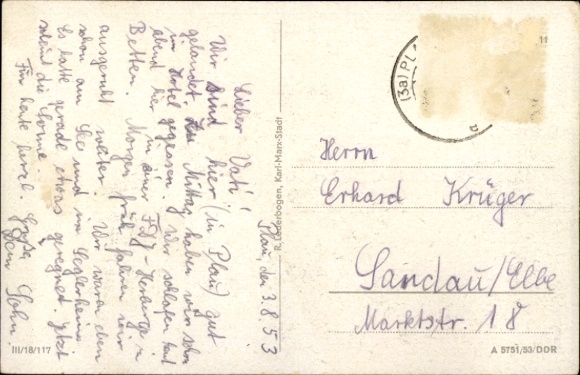 Plau, den 3.8.53
Lieber Vati!
Wir sind hier (in Plau) gut
gelandet. Zu Mittag haben wir schon
im Hotel gegessen. Wir schlafen heut
abend hier in einer FDJ-Herberge in
Betten. Morgen früh fahren wir
ausgeruht weiter. Wir waren eben
schon am See und im Seglerheim.
Es hatte gerade etwas geregnet. Jetzt
scheint die Sonne.
Für heute herzl. Grüße
Dein Sohn
III/18/117
R. Lederbogen, Karl-Marx-Stadt
(3a) PL
11
a
Herrn
Erhard Krüger
Sandau/Elbe
Marktstr. 18
A 5751/53/DDR